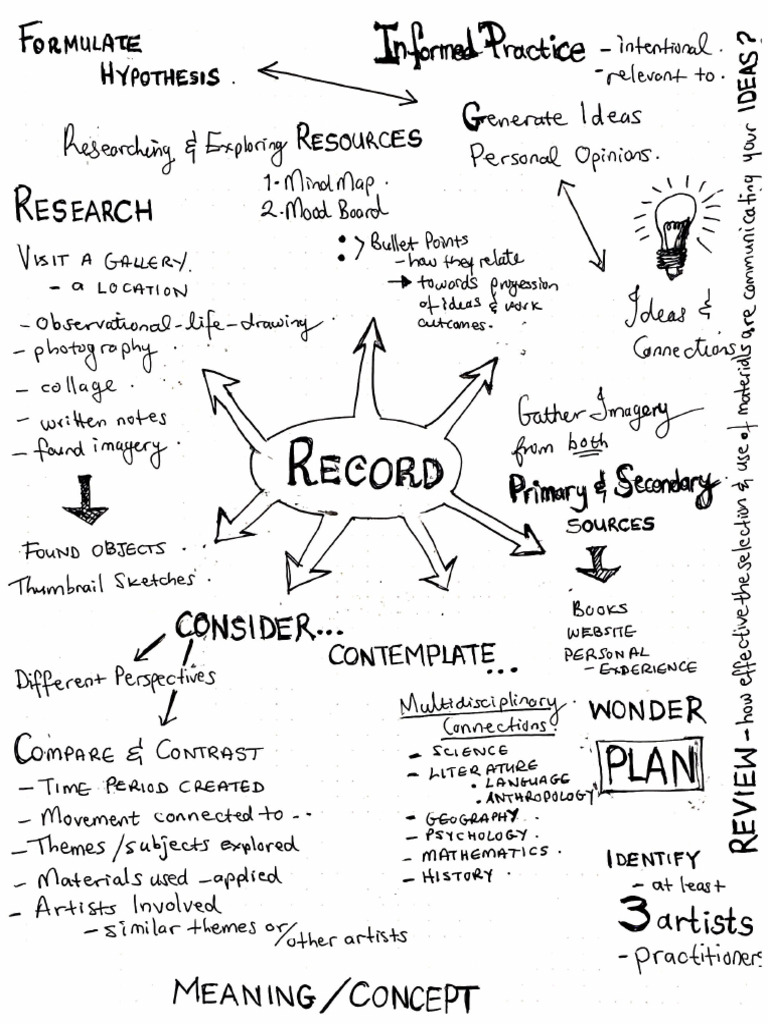 FORMULATE
HYPOTHESIS.
Informed Practice
- intentional.
- relevant to.
Generate Ideas
Personal Opinions.
Researching & Exploring RESOURCES
1- Mind Map.
2. Mood Board
Bullet Points
- how they relate
towards progression
of ideas & work
outcomes.
RESEARCH
VISIT A GALLERY.
- a LOCATION
- Observational-life-drawing
- photography.
- collage.
- written notes
- found imagery.
FOUND OBJECTS.
Thumbnail Sketches.
Ideas &
Connections
RECORD
Gather Imagery
from both
Primary & Secondary.
SOURCES
BOOKS
WEBSITE
PERSONAL
- EXPERIENCE
CONSIDER...
Different Perspectives
COMPARE & CONTRAST
- TIME PERIOD CREATED
- Movement connected to ...
- Themes/subjects explored
- Materials used - applied
- Artists Involved
- similar themes or/other artists
CONTEMPLATE...
Multidisciplinary
Connections.
- SCIENCE
- LITERATURE
• LANGUAGE
• ANTHROPOLOGY
- GEOGRAPHY.
- PSYCHOLOGY.
- MATHEMATICS.
- HISTORY.
WONDER
PLAN
IDENTIFY
- at least
3 artists
- practitioners
REVIEW - how effective the selection & use of materials are communicating your IDEAS?
MEANING/CONCEPT